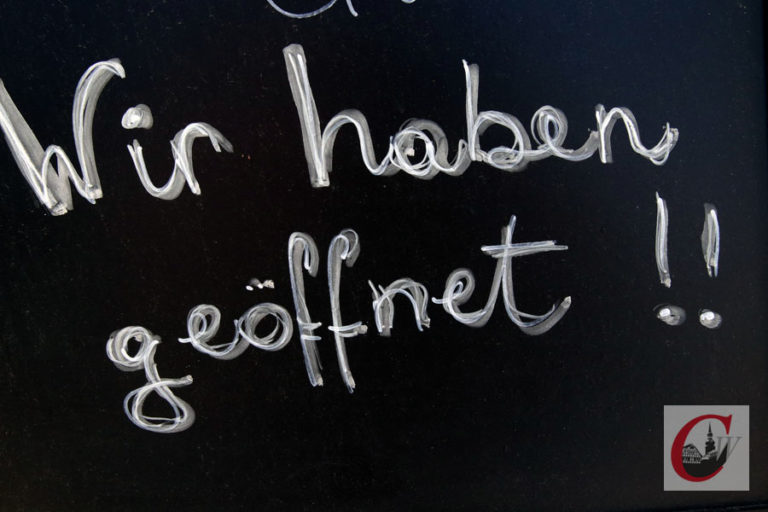 Wir haben
geöffnet !!
CW